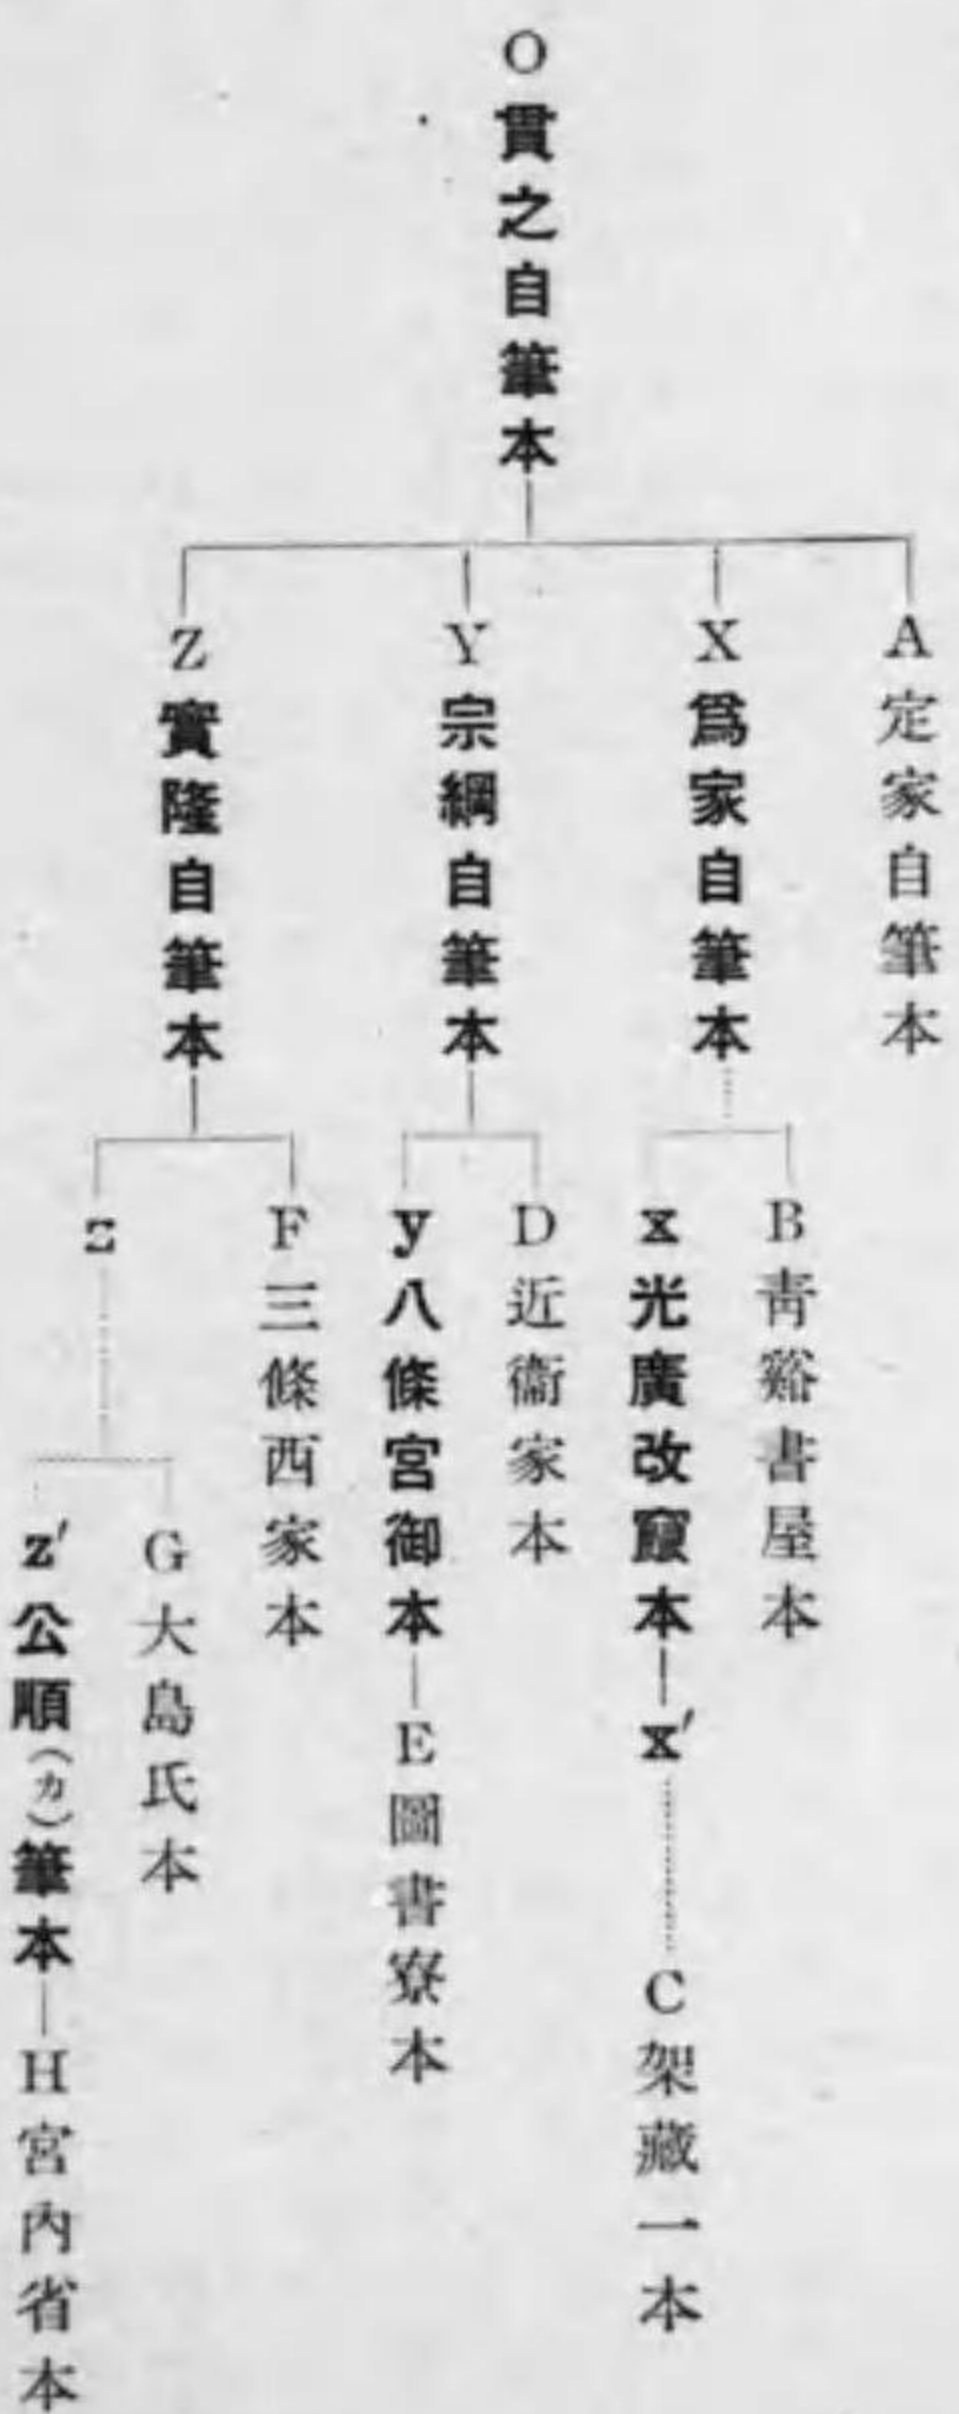 O貫之自筆本
A定家自筆本
X爲家自筆本
B靑谿書屋本
x光廣改竄本
x′
C架藏一本
Y宗綱自筆本
D近衞家本
y八條宮御本
E圖書寮本
Z實隆自筆本
F三條西家本
z
G大島氏本
z′公順(カ)筆本
H宮內省本